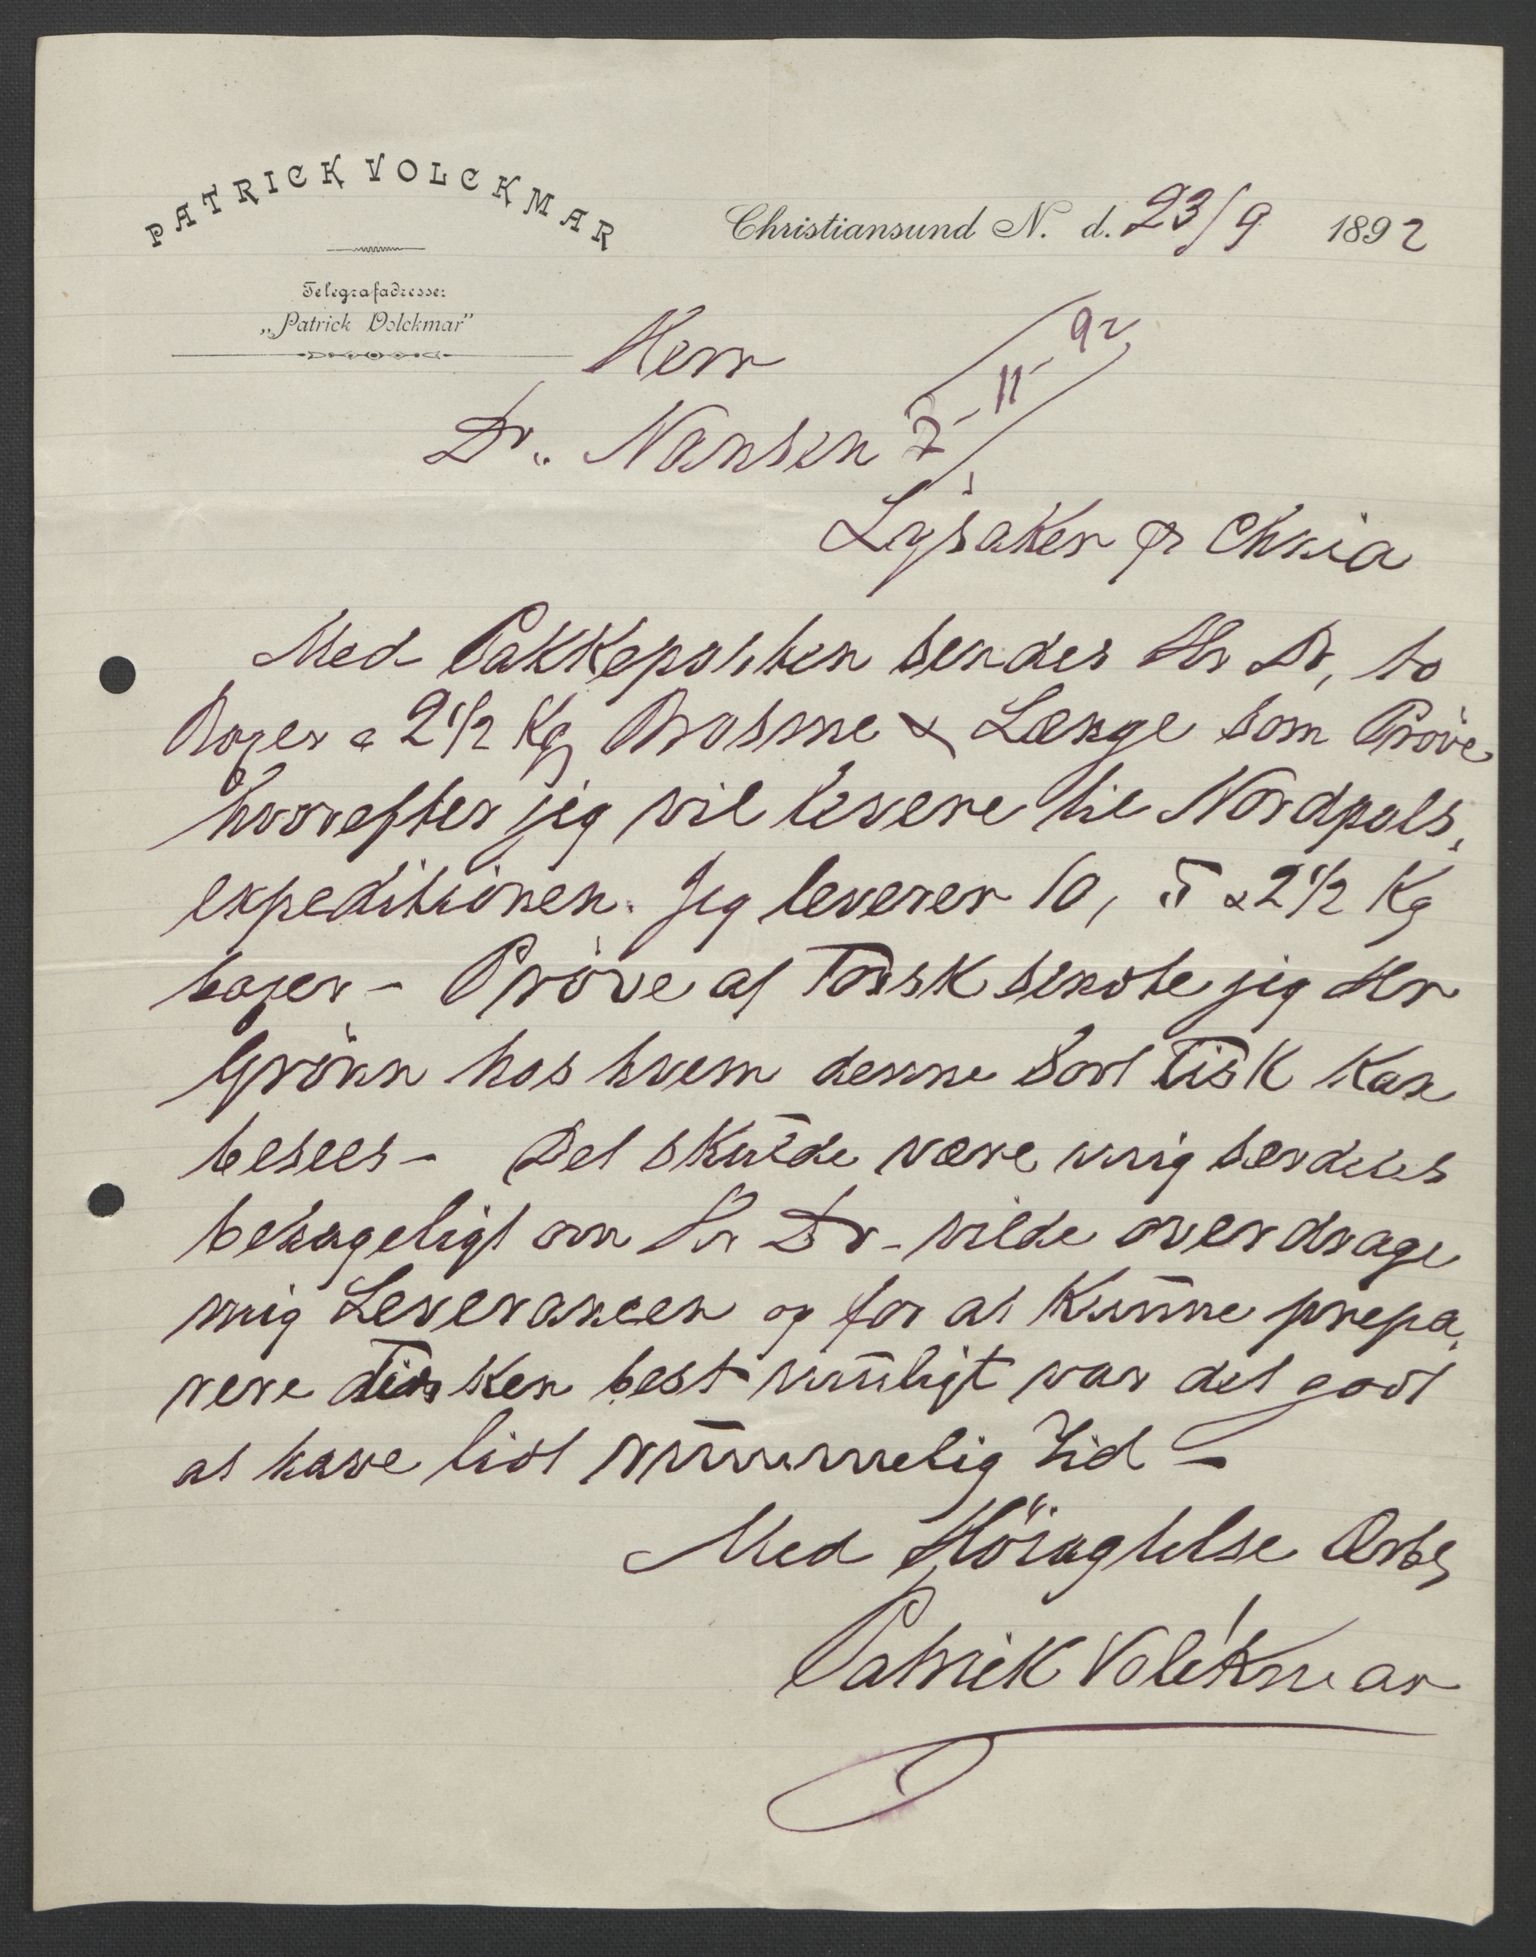 PATRICK VOLCKMAR
Telegrafadresse:
„Patrick Volckmar"
Christiansund N. d. 23/9 1892
Herr
Dr. Nansen
7-11-92
Lysaker pr Chnia
Med Pakkeposten sendes Hr Dr, to
Daaser a 2 1/2 Kg Brosme & Længe som Prøve
hvorefter jeg vil levere til Nordpols,
expeditionen. Jeg leverer 10, 5 & 2 1/2 Kg
Daaser - Prøve af Torsk sendte jeg Hr
Grönn hos hvem denne Sort Fisk kan
besees - Det skulde være mig særdeles
behageligt om Hr Dr. vilde overdrage
mig Leverancen og for at kunne prepa,
rere Fisken best muligt var det godt
at have lidt rummelig Tid -
Med Höiagtelse Ærb
Patrick Volckmar